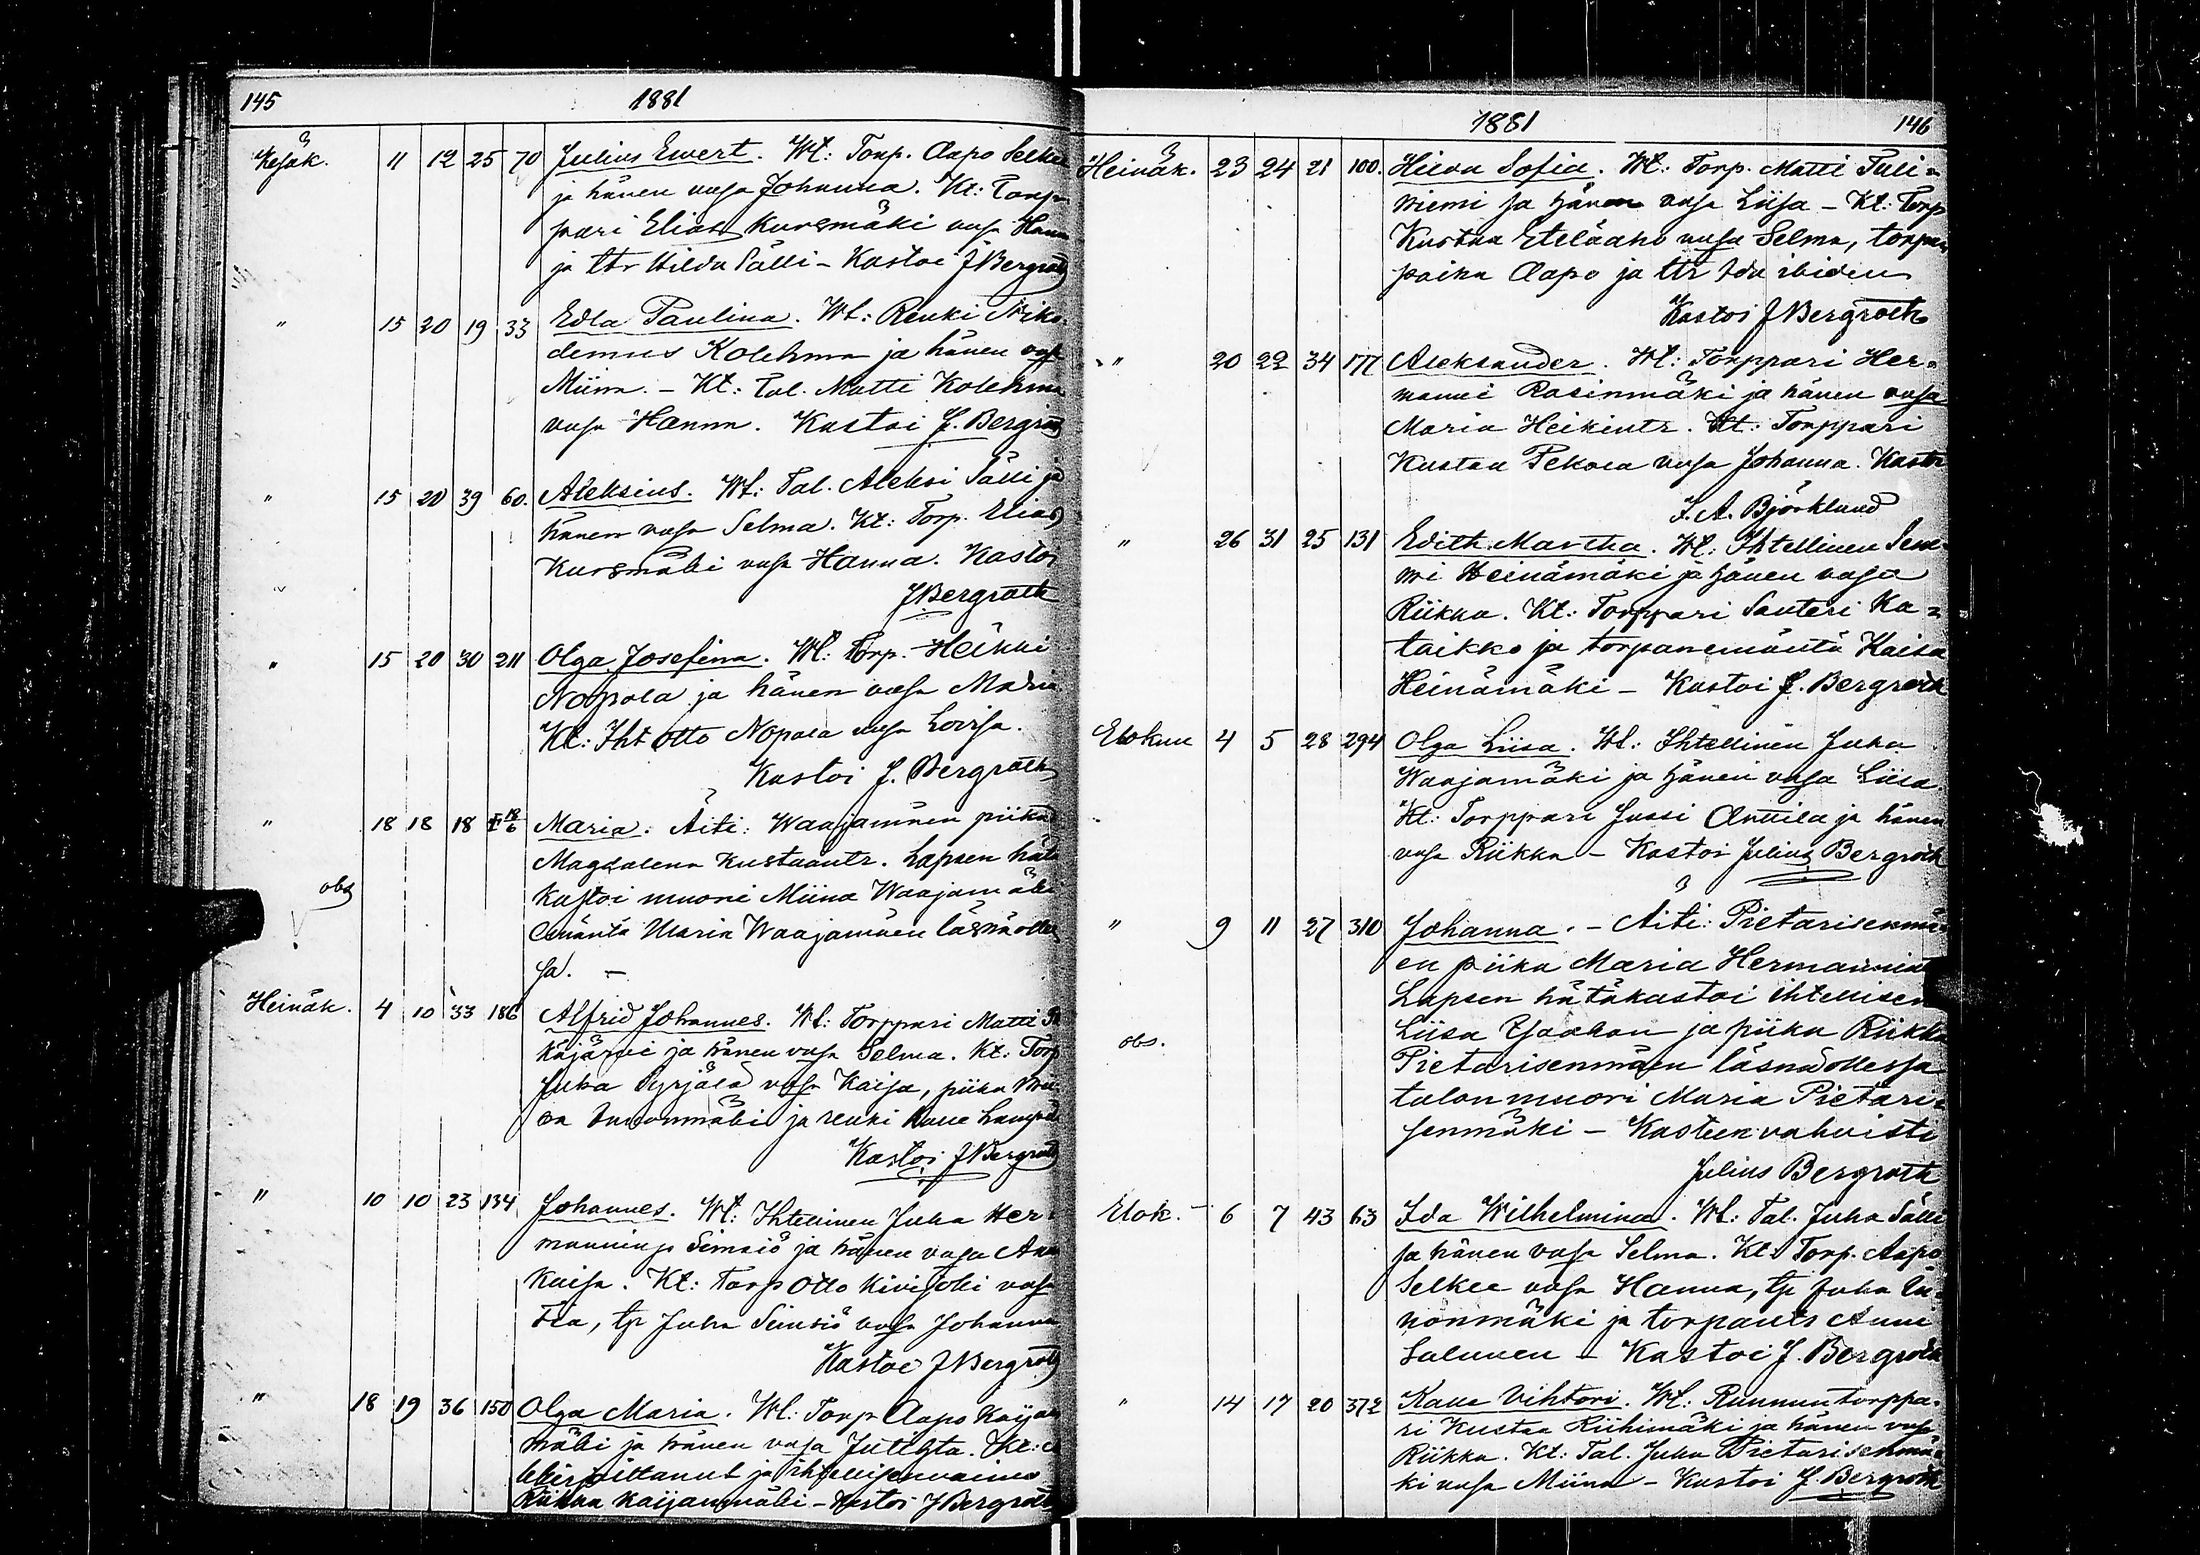 145 1881
Kesäk. 11 12 25 70 Julius Ewert. Wt: Torp. Aapo Selkee
ja hänen vmsa Johanna. Kt: Torp-
pari Elias Kursmäki vmsa Hanna
ja ttr Hilda Sälli - Kastoi J Bergroth
" 15 20 19 33 Edla Paulina. Wt: Renki Niko-
demus Kolehma ja hänen vmsa
Miina. - Kt: Tal. Matti Kolehma
vmsa Hanna. Kastoi J. Bergroth
" 15 20 39 60. Aleksius. Wt: Tal. Aleksi Sälli ja
hänen vmsa Selma. Kt: Torp. Elias
Kursmäki vmsa Hanna. Kastoi
J Bergroth
" 15 20 30 211 Olga Josefina. Wt: Torp. Heikki
Nopola ja hänen vmsa Maria
Kt: Iht Otto Nopola vmsa Lovisa.
Kastoi J. Bergroth
" 18 18 18 Maria. Äiti: Waajamäen piika
Magdalena Kustaantr. Lapsen hätä
obs kastoi muori Miina Waajamäki
emäntä Maria Waajamäen läsnäolles
sa. -
Heinäk. 4 10 33 186 Alfrid Johannes. Wt: Torppari Matti
kajärvi ja hänen vmsa Selma. Kt: Torp
Juha Syrjälä vmsa Kaisa, piika
ja renki
Kastoi J Bergroth
" 10 10 23 134 Johannes. Wt: Ihtellinen Juha Her-
manninp Simsiö ja hänen vmsa Anna
Kaisa. Kt: Torp Otto Kivisobi vmsa
Fia, tp Juha Simsiö vmsa Johanna
Kastoi J Bergroth
" 18 19 36 150 Olga Maria. Wt: Torp Aapo Kaijan
mäki ja hänen vmsa Kt:
allekirjoittanut ja ihtellisenvaimo
Riikka Kaijanmäki - Kastoi J Bergroth
1881 146
Heinäk. 23 24 21 100. Hilda Sofia. Wt: Torp. Matti Tuli-
niemi ja hänen vmsa Liisa - Kt: Torp
Kustaa Eteläaho vmsa Selma, torpan
poika Aapo ja ttr Ida ibidem
Kastoi J Bergroth
" 20 22 34 177 Aleksander. Wt: Torppari Her-
manni Rasinmäki ja hänen vmsa
Maria Heikintr. Kt: Torppari
Kustaa Pekola vmsa Johanna. Kastoi
J. A. Björklund
" 26 31 25 131 Edith Martha. Wt: Ihtellinen
Heinämäki ja hänen vmsa
Riikka. Kt: Torppari Santeri Ka-
taikko ja torpanemäntä Kaisa
Heinämäki - Kastoi J. Bergroth
Elokuu 4 5 28 294 Olga Liisa. Wt: Ihtellinen Juha
Waajamäki ja hänen vmsa Liisa.
Kt: Torppari Jussi Anttila ja hänen
vmsa Riikka - Kastoi Julius Bergroth
" 9 11 27 310 Johanna. - Äiti: Pietarisenmä-
en piika Maria Hermannint
Lapsen hätäkastoi ihtellisen
obs. Liisa ja piika Riikka
Pietarisenmäen läsnäollessa
talonmuori Maria Pietari-
senmäki - Kasteen vahvisti
Julius Bergroth
Elok. 6 7 43 63 Ida Wilhelmina. Wt: Tal. Juha Sälli
ja hänen vmsa Selma. Kt: Torp. Aapo
Selkee vmsa Hanna, tp Juha Lu-
nonmäki ja torpantr Anna
Salunen - Kastoi J. Bergroth
" 14 17 20 372 Kalle Vihtori. Wt: Ruununtorppa-
ri Kustaa Riihimäki ja hänen vmsa
Riikka. Kt: Tal. Juha Pietarisenmä-
ki vmsa Miina - Kastoi J. Bergroth